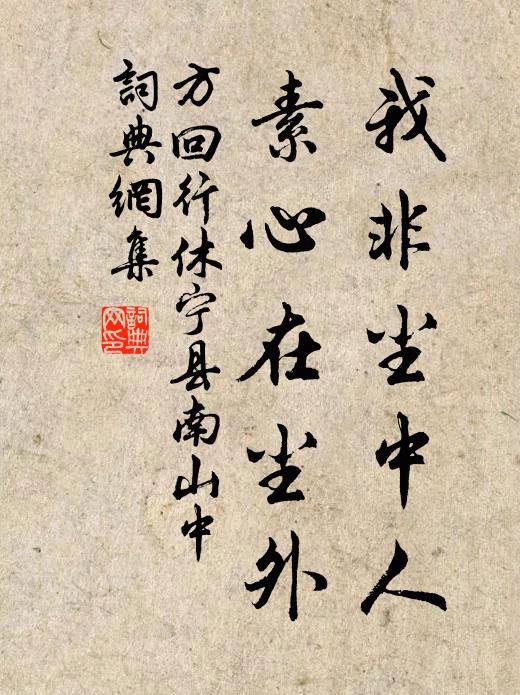 我非尘中人
素心在尘外
方回行休宁县南山中
詞典網集
詞典
网印